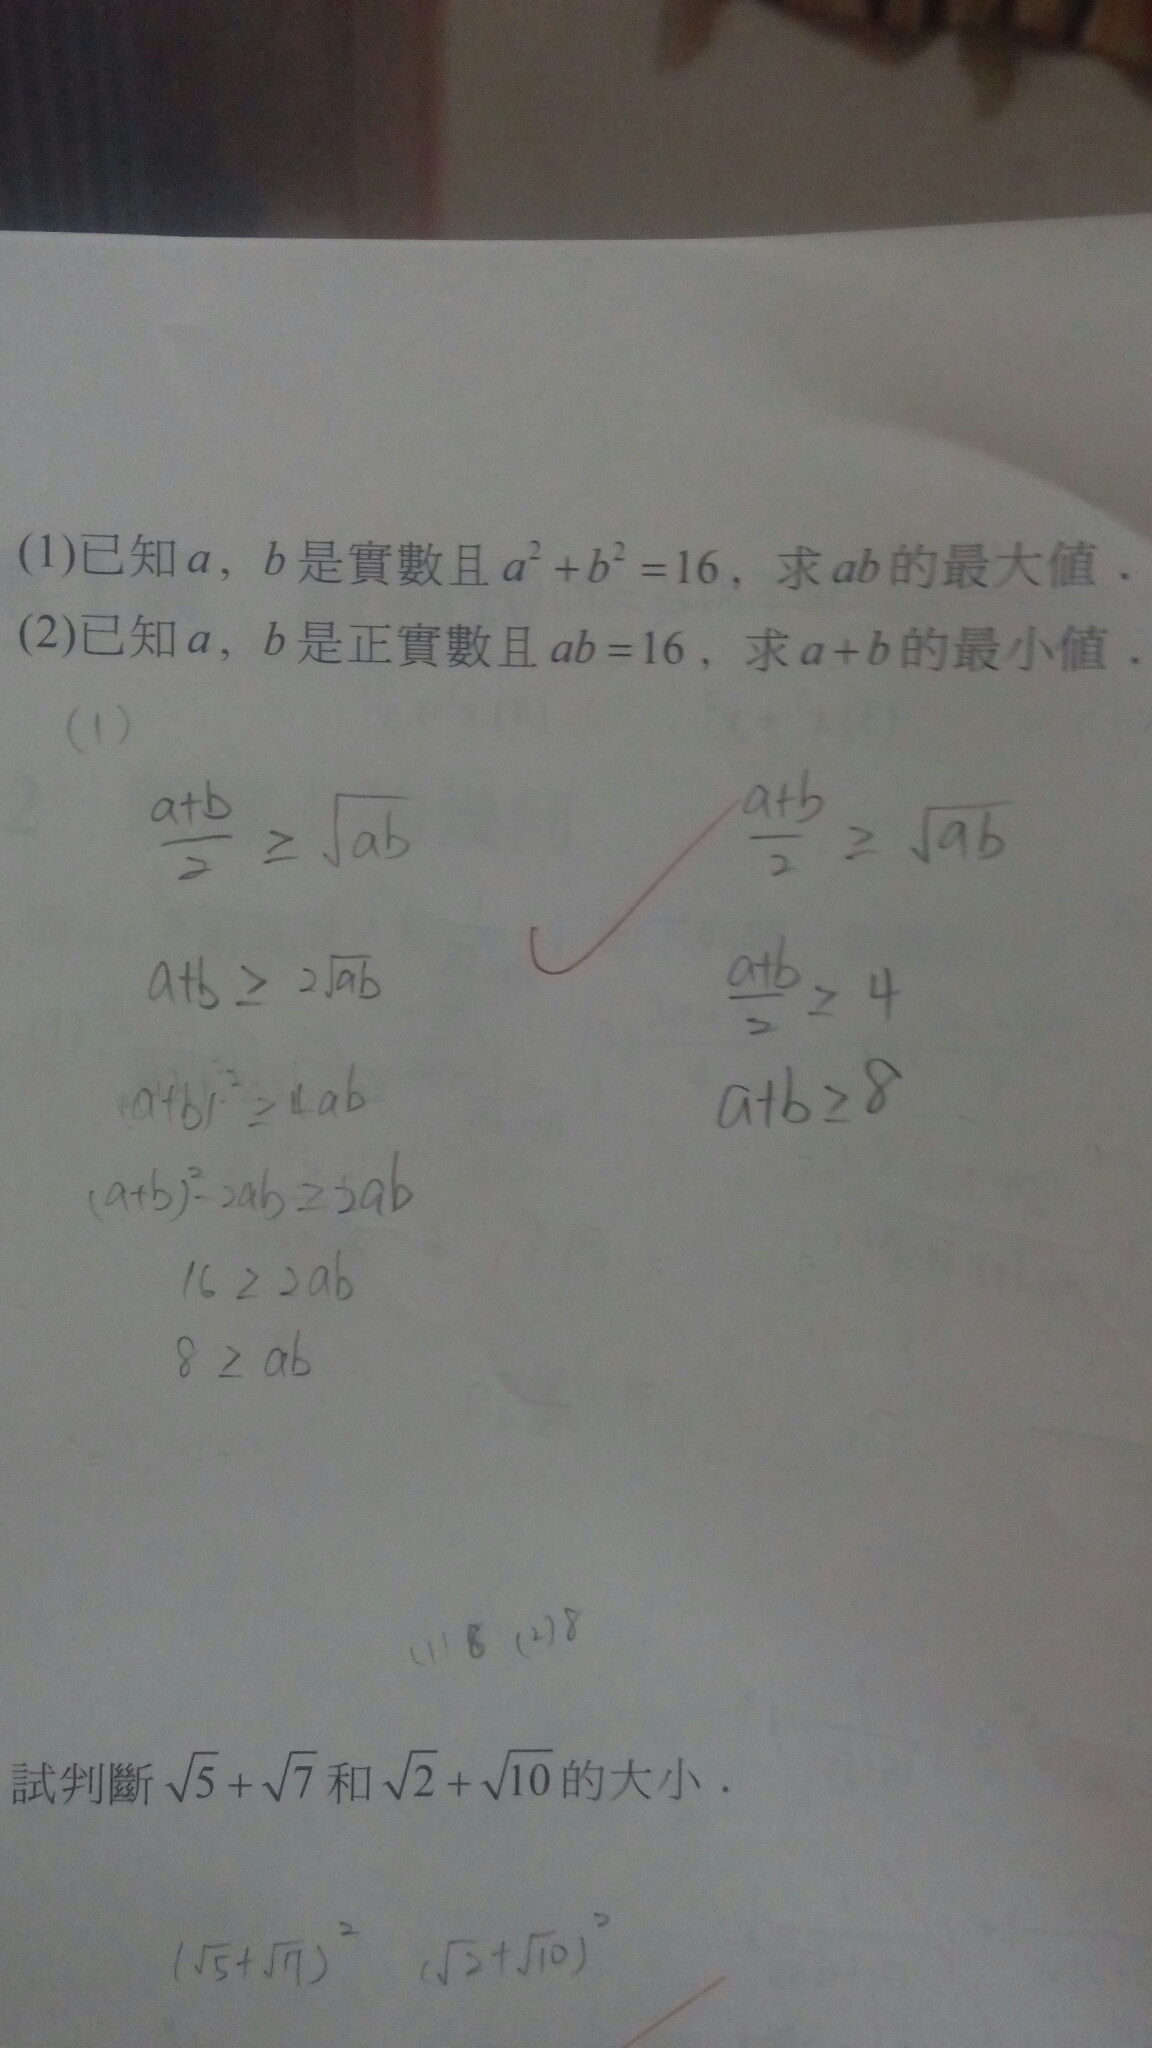 (1)已知a，b是實數且a²+b²=16，求ab的最大值．
(2)已知a，b是正實數且ab=16，求a+b的最小值．
(1)
(a+b)/2 ≥ √ab
a+b ≥ 2√ab
(a+b)² ≥ 4ab
(a+b)²-2ab ≥ 2ab
16 ≥ 2ab
8 ≥ ab
(a+b)/2 ≥ √ab
(a+b)/2 ≥ 4
a+b ≥ 8
(1) 8 (2) 8
試判斷√5+√7和√2+√10的大小．
(√5+√7)² (√2+√10)²